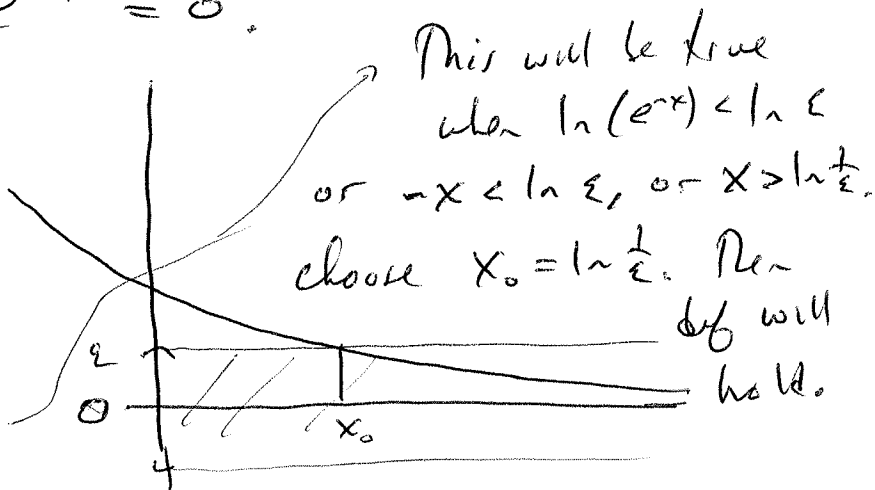 = 0.
This will be true
when ln(e^-x) < ln ε
or -x < ln ε, or x > ln 1/ε.
choose x₀ = ln 1/ε. Then
def will
hold.
ε
0
x₀